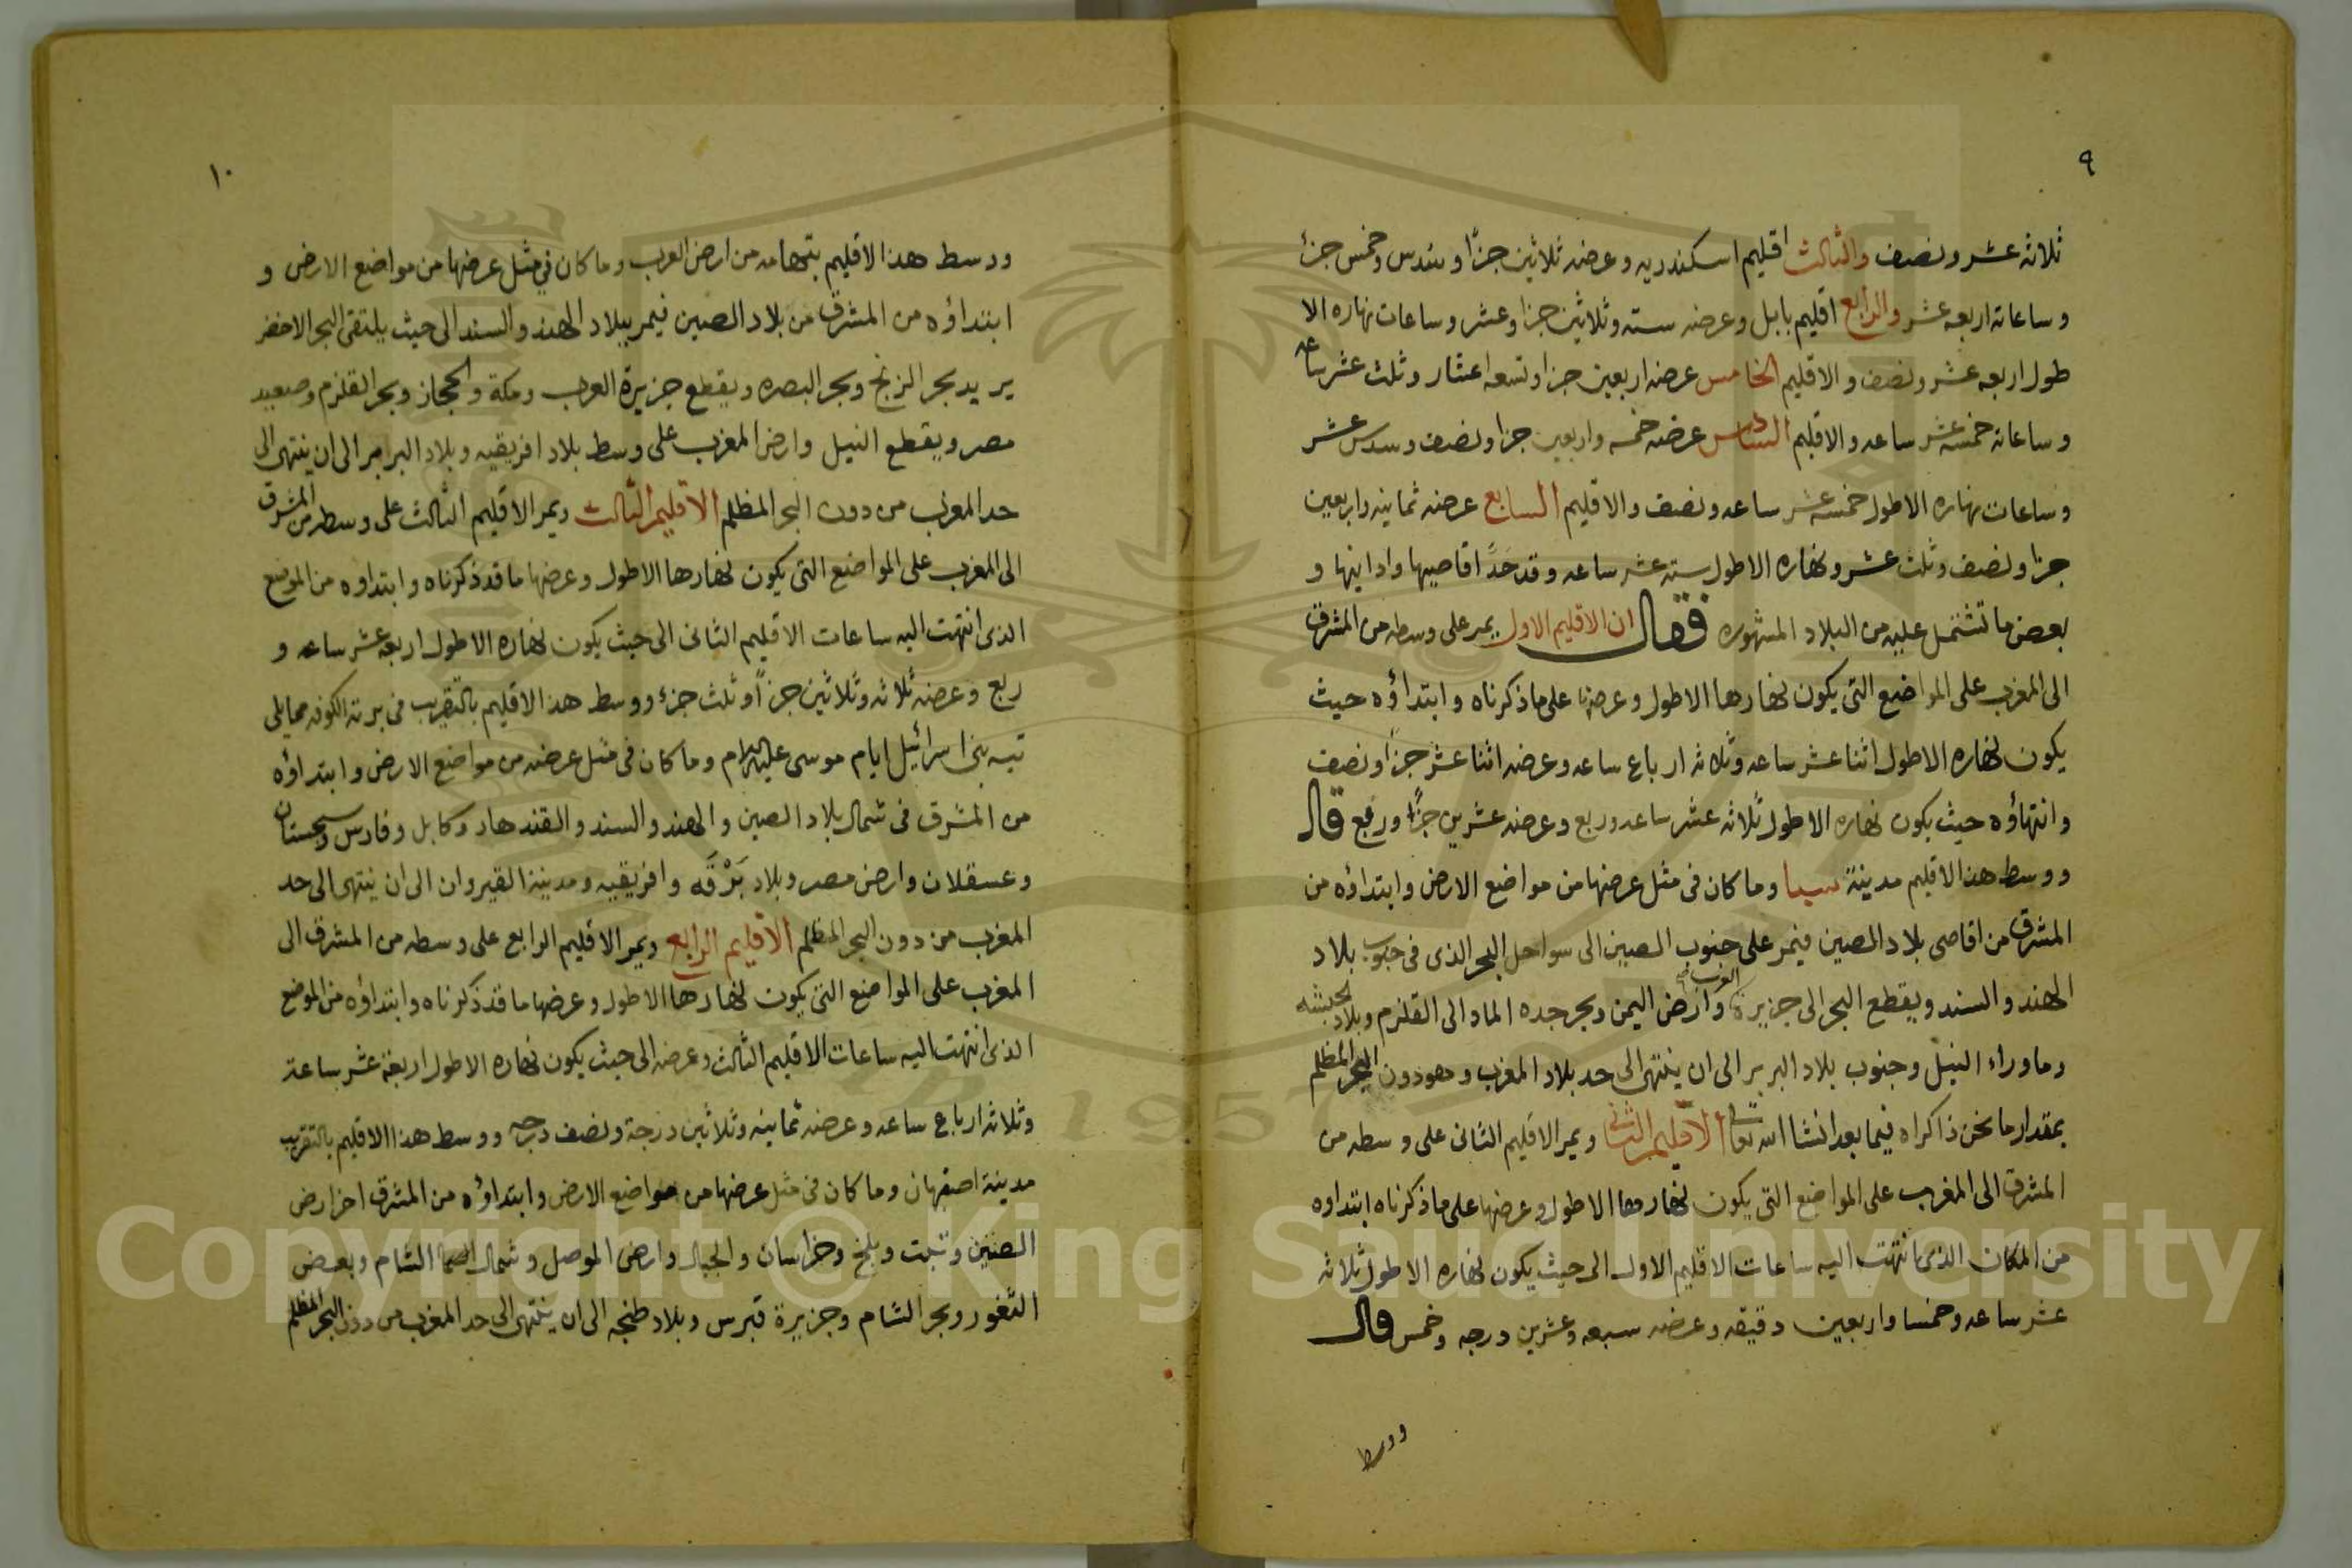 ٩
ثلاثه عشر ونصف والثالث اقليم اسكندريه وعرضه ثلاثين جزاً وسدس وخمس جزئ
وساعاته اربعه عشر والرابع اقليم بابل وعرضه سته وثلاثين جزا وعشر وساعات نهاره الا
طول اربعه عشر ونصف والاقليم الخامس عرضه اربعين جزا وتسعه اعشار وثلث عشر ساعه
وساعاته خمسه عشر ساعه والاقليم السادس عرضه خمسه واربعين جزا ونصف وسدس عشر
وساعات نهاره الاطول خمسه عشر ساعه ونصف والاقليم السابع عرضه ثمانيه واربعين
جزا ونصف وثلث عشر ونهاره الاطول سته عشر ساعه وقد حَدَّ اقاصيها وادانيها و
بعض ما تشتمل عليه من البلاد المشهوره فقال ان الاقليم الاول يمر على وسطه من المشرق
الى المغرب على المواضع التى يكون نهارها الاطول وعرضها على ما ذكرناه وابتداؤه حيث
يكون نهاره الاطول اثنا عشر ساعه وثلاثه ارباع ساعه وعرضه اثنا عشر جزاً ونصف
وانتهاؤه حيث يكون نهاره الاطول ثلاثه عشر ساعه وربع وعرضه عشرين جزًا وربع قال
ووسط هذا الاقليم مدينة سبا وما كان فى مثل عرضها من مواضع الارض وابتداؤه من
المشرق من اقاصى بلاد الصين فيمر على جنوب الصين الى سواحل البحر الذى فى جنوب بلاد
الهند والسند ويقطع البحر الى جزيرة العرب وارض اليمن وبحر جده الماد الى القلزم وبلاد الحبشه
وما وراء النيل وجنوب بلاد البربر الى ان ينتهى الى حد بلاد المغرب وهو دون البحر المظلم
بمقدار ما نحن ذاكراه فيما بعد انشا الله تعالى الاقليم الثانى ويمر الاقليم الثانى على وسطه من
المشرق الى المغرب على المواضع التى يكون نهارها الاطول وعرضها على ما ذكرناه ابتداوه
من المكان الذى انتهت اليه ساعات الاقليم الاول الى حيث يكون نهاره الاطول ثلاثه
عشر ساعه وخمسا واربعين دقيقه وعرضه سبعه وعشرين درجه وخمس قال
ووسط
١٠
ووسط هذا الاقليم بتهامه من ارض العرب وما كان في مثل عرضها من مواضع الارض و
ابتداؤه من المشرق من بلاد الصين فيمر ببلاد الهند والسند الى حيث يلتقى البحر الاخضر
يريد بحر الزنج وبحر البصره ويقطع جزيرة العرب ومكة والحجاز وبحر القلزم وصعيد
مصر ويقطع النيل وارض المغرب على وسط بلاد افريقيه وبلاد البربر الى ان ينتهى الى
حد المغرب من دون البحر المظلم الاقليم الثالث ويمر الاقليم الثالث على وسطه من المشرق
الى المغرب على المواضع التى يكون نهارها الاطول وعرضها ما قد ذكرناه وابتداوه من الموضع
الذى انتهت اليه ساعات الاقليم الثانى الى حيث يكون نهاره الاطول اربعه عشر ساعه و
ربع وعرضه ثلاثه وثلاثين جزاً وثلث جزئ ووسط هذا الاقليم بالتقريب فى برته الكوفه مما يلى
تيه بنى اسرائيل ايام موسى عليه السلام وما كان فى مثل عرضه من مواضع الارض وابتداؤه
من المشرق فى شمال بلاد الصين والهند والسند والقندهار وكابل وفارس وسجستان
وعسقلان وارض مصر وبلاد بَرْقَه وافريقيه ومدينة القيروان الى ان ينتهى الى حد
المغرب من دون البحر المظلم الاقليم الرابع ويمر الاقليم الرابع على وسطه من المشرق الى
المغرب على المواضع التى يكون نهارها الاطول وعرضها ما قد ذكرناه وابتداؤه من الموضع
الذى انتهت اليه ساعات الاقليم الثالث وعرضه الى حيث يكون نهاره الاطول اربعة عشر ساعة
وثلاثه ارباع ساعه وعرضه ثمانيه وثلاثين درجة ونصف درجه ووسط هذا الاقليم بالتقريب
مدينة اصفهان وما كان فى مثل عرضها من مواضع الارض وابتداؤه من المشرق اخر ارض
الصين وتبت وبلخ وخراسان والجبال وارض الموصل وشمال الشام وبعض
الثغور وبحر الشام وجزيرة قبرس وبلاد طنجه الى ان ينتهى الى حد المغرب من دون البحر المظلم
1957
Copyright © King Saud University